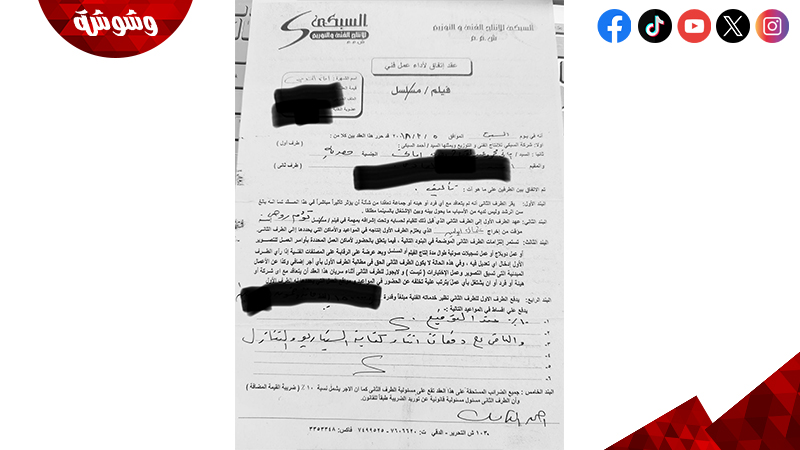 وشوشة
السبكى
للإنتاج الفنى والتوزيع
ش.م.م
السبكى للإنتاج الفنية و التوزيع
ش.م.م
عقد إتفاق لأداء عمل فني
فيلم / مسلسل
اسم الشهرة :
قيمة
إنه في يوم السبت الموافق ٢٠١٨/٣/٥ قد حرر هذا العقد بين كلا من :
اولا: شركة السبكي للانتاج الفني و التوزيع ويمثلها السيد / أحمد السبكي ( طرف أول )
ثانيا : السيد / الجنسية
والمقيم ( طرف ثانى )
تم الاتفاق بين الطرفين على ما هو آت : تأليف
البند الأول: يقر الطرف الثانى أنه لم يتعاقد مع أى فرد أو هيئه أو جماعة تعاقدا من شأنة أن يؤثر تأثيراً مباشراً في هذا العقد كما انه بالغ
سن الرشد وليس لديه من الأسباب ما يحول بينه وبين الإشتغال بالسينما مطلقا .
البند الثانى: عهد الطرف الأول إلى الطرف الثانى الذي قبل ذلك للقيام لحسابه وتحت إشرافه بمهمة في فيلم / مسلسل
مؤقت من إخراج الذي يعتزم الطرف الأول إنتاجه في المواعيد والأماكن التي يحددها إلى الطرف الثانى.
البند الثالث: تستمر إلتزامات الطرف الثاني الموضحة في البنود التالية ، فيما يتعلق بالحضور لأماكن العمل المحددة بأوامر العمل للتصوير
أو عمل دوبلاج أو عمل تسجيلات صوتية طوال مدة إنتاج الفيلم أو المسلسل وبعد عرضة على الرقابة على المصنفات الفنية إذا رأى الطرف
الأول إدخال أي تعديل فيه ، وفي هذه الحالة لا يكون للطرف الثانى الحق في مطالبة الطرف الأول بأي أجر إضافي وكذا عن الأعمال
المبدئية التي تسبق التصوير وعمل الإختبارات ( تيست ) و لايجوز للطرف الثانى أثناء سريان هذا العقد أن يتعاقد مع اى شركة أو
هيئة أو فرد أو ان يشتغل بأي عمل يترتب علية تخلفه عن الحضور في المواعيد
البند الرابع: يدفع الطرف الاول للطرف الثاني نظير خدماته الفنية مبلغا وقدرة
يدفع على اقساط في المواعيد التالية :
١- ١٠٪ عند التوقيع
٢-
٣- والباقى دفعات أثناء كتابة السيناريو والتنازل
٤-
٥-
٦-
البند الخامس : جميع الضرائب المستحقة على هذا العقد تقع على مسئولية الطرف الثانى كما ان الاجر يشمل نسبة ١٠ ٪ ( ضريبة القيمة المضافة )
وأن الطرف الثانى مسئول مسئولية قانونية عن توريد الضريبة طبقاً للقانون.
١٠٣ ش التحرير - الدقي ت: ٧٦٠٦٦٢٠ - ٧٤٩٢٥٢٥ فاكس: ٣٣٥٣٣٤٨